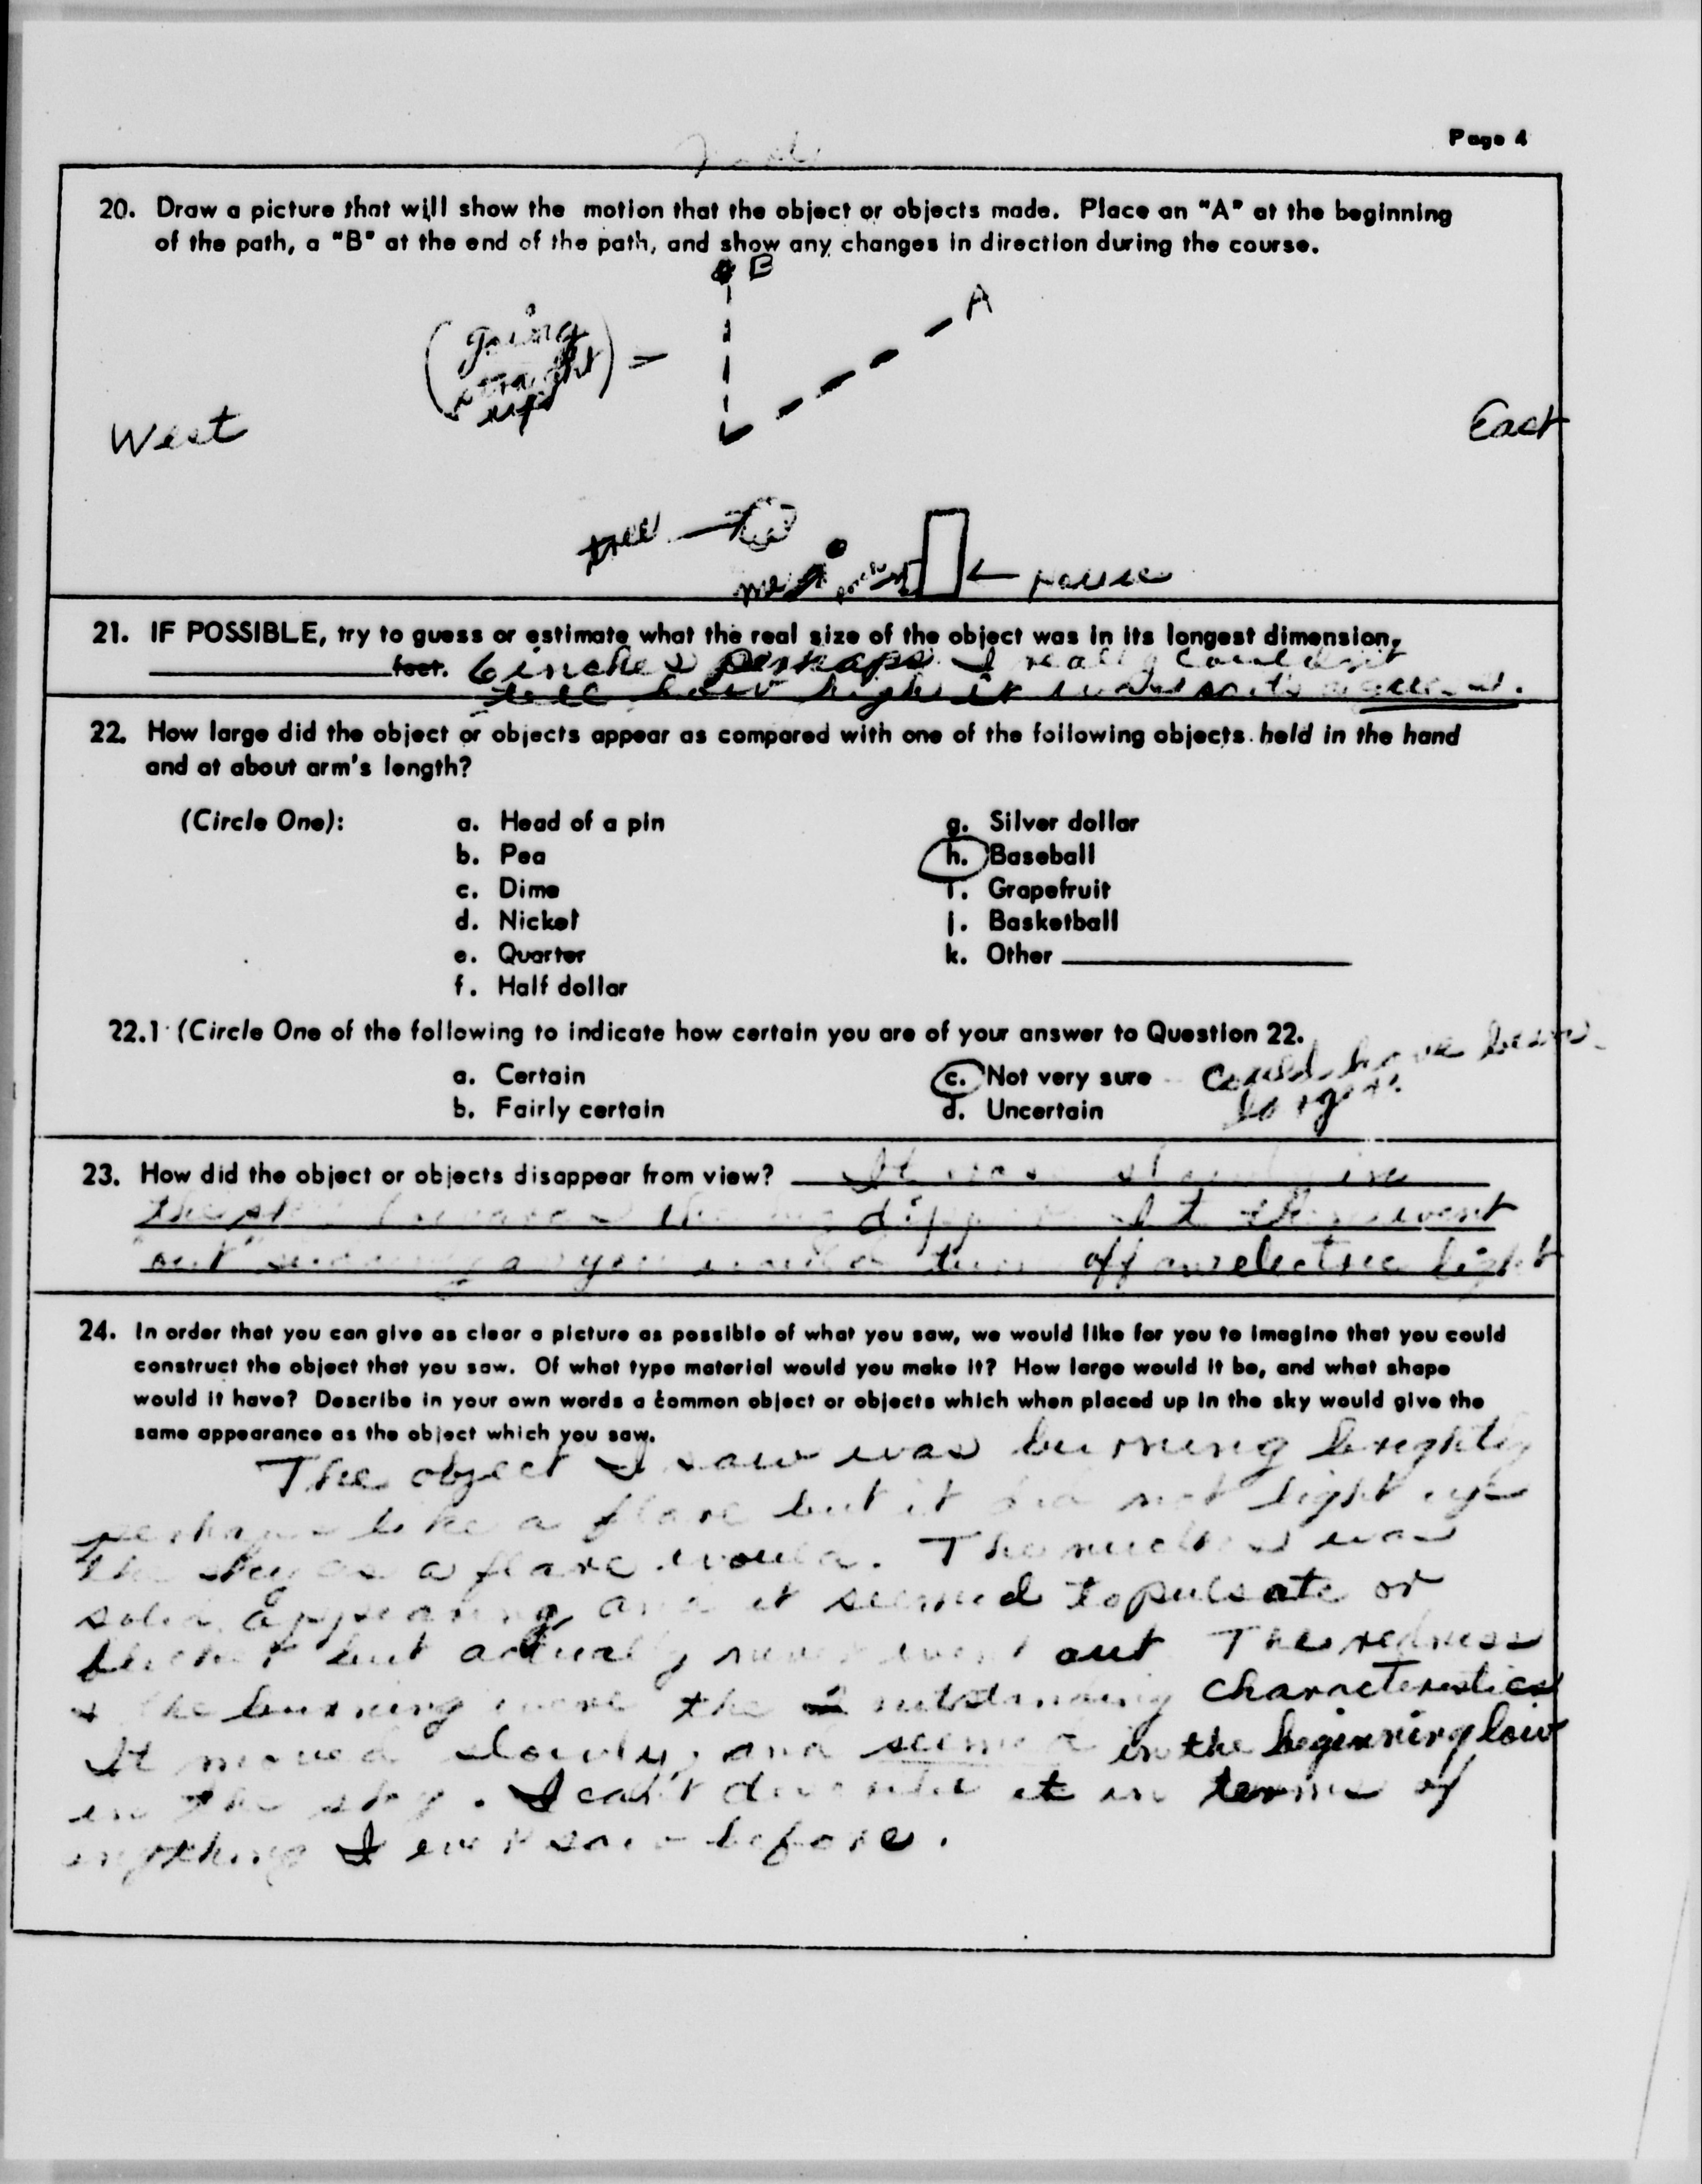 Page 4
20. Draw a picture that will show the motion that the object or objects made. Place an "A" at the beginning
of the path, a "B" at the end of the path, and show any changes in direction during the course.
B
A
(going
straight
up)
West
East
tree
me
house
21. IF POSSIBLE, try to guess or estimate what the real size of the object was in its longest dimension.
feet. 6 inches perhaps. I really couldn't
tell how high it was
22. How large did the object or objects appear as compared with one of the following objects held in the hand
and at about arm's length?
(Circle One):
a. Head of a pin
b. Pea
c. Dime
d. Nickel
e. Quarter
f. Half dollar
g. Silver dollar
h. Baseball
i. Grapefruit
j. Basketball
k. Other
22.1 (Circle One of the following to indicate how certain you are of your answer to Question 22.
a. Certain
b. Fairly certain
c. Not very sure
d. Uncertain
could have been
larger.
23. How did the object or objects disappear from view? It was in
the dipper went
out as you would turn off an electric light
24. In order that you can give as clear a picture as possible of what you saw, we would like for you to imagine that you could
construct the object that you saw. Of what type material would you make it? How large would it be, and what shape
would it have? Describe in your own words a common object or objects which when placed up in the sky would give the
same appearance as the object which you saw.
The object I saw was burning brightly
perhaps like a flare but it did not light up
the sky as a flare would. The nucleus was
solid appearing and it seemed to pulsate or
but actually never went out The redness
& the burning were the outstanding characteristics
It moved slowly, and seemed in the beginning low
in the sky. I can't describe it in terms of
anything I ever saw before.